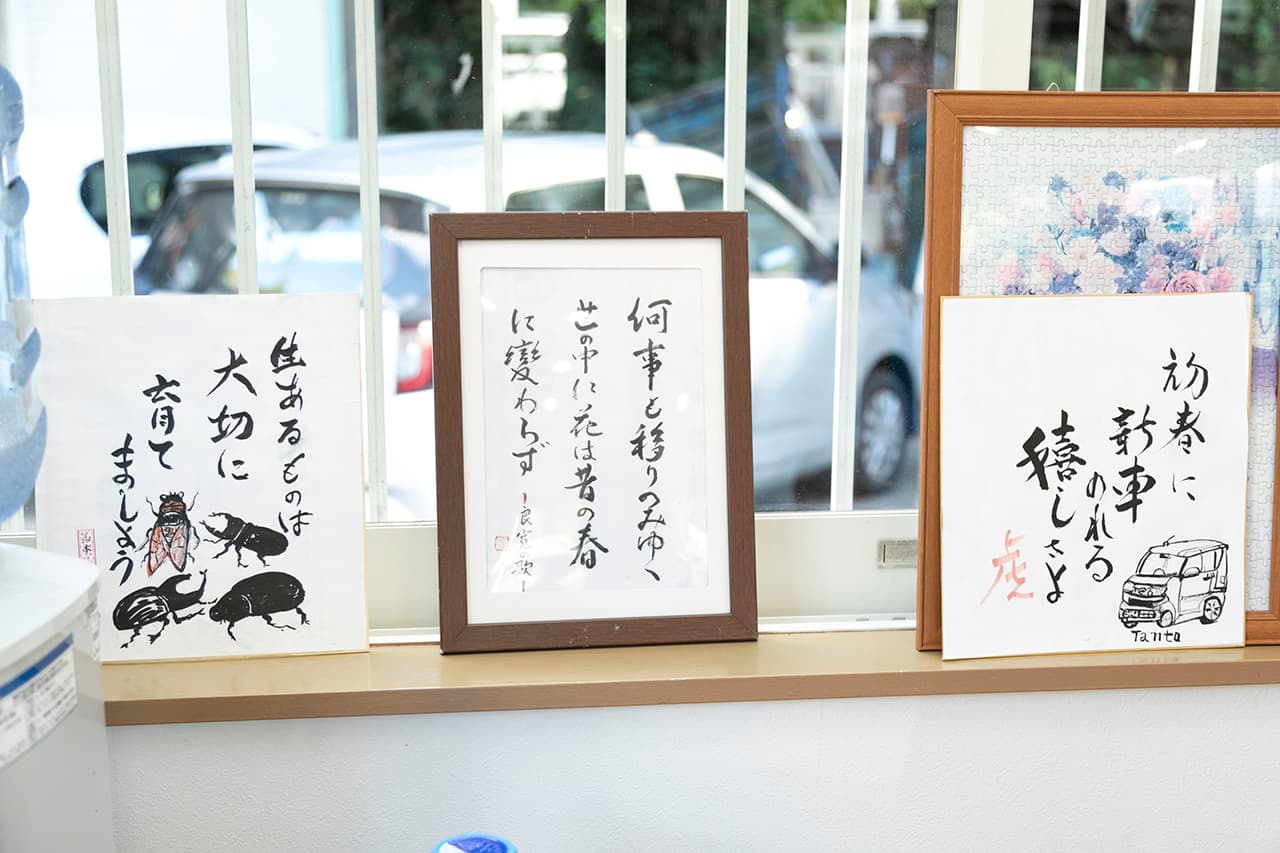 生あるものは
大切に
育て
ましょう
何事も移りのみゆく
世の中に花は昔の春
に變わらず
ー良寛の歌ー
初春に
新車
のれる
嬉し
さよ
虎
Tanto